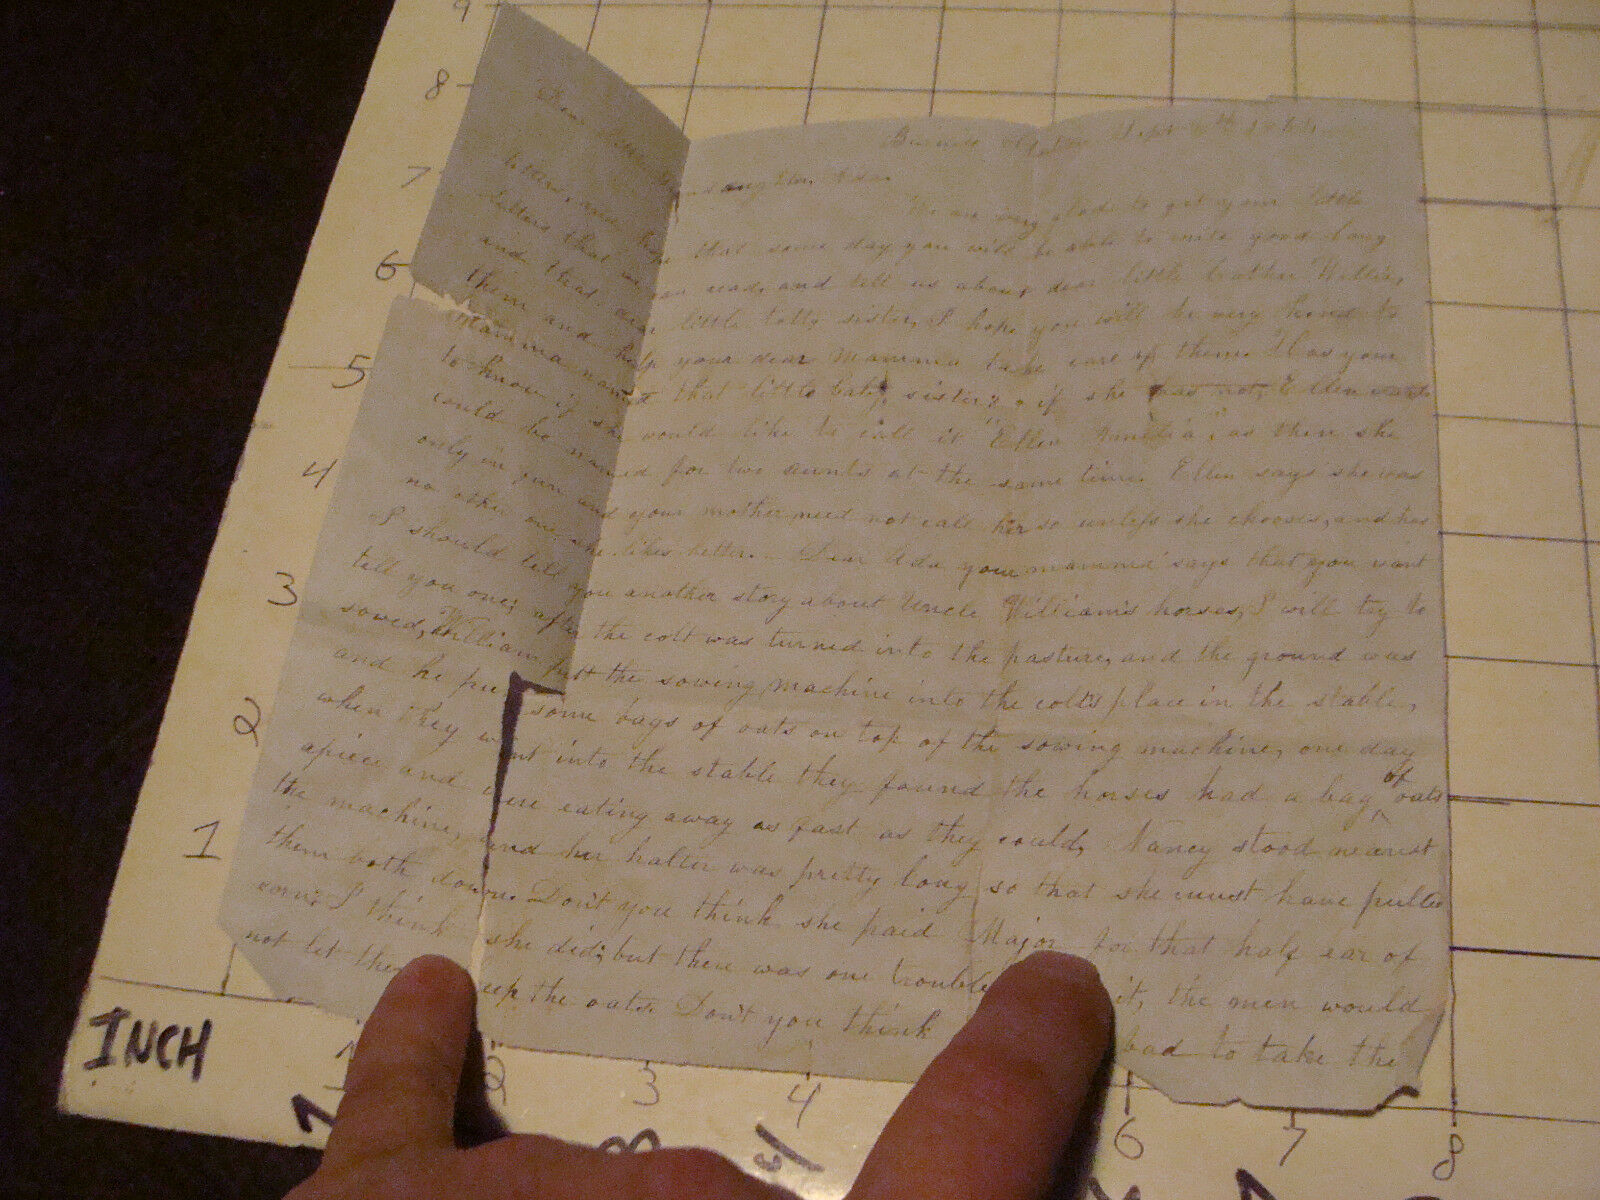 9
8
7
6
5
4
3
2
1
INCH
2
3
4
6
7
8
Dear little Grandaughter, Ada.
We are very glad to get your little
letters, and hope that some day you will be able to write good long
letters that we can read, and tell us about dear little brother Willie,
and that dear little baby sister, I hope you will be very kind to
them and help your dear Mamma take care of them. Has your
Mamma named that little baby sister? if she has not, Ellen wants
to know if she would like to call it "Ellen , as then she
could be named for two aunts at the same time. Ellen says she was
only in fun and your mother need not call her so unless she chooses, and has
no other one she likes better. — Dear Ada your mamma says that you want
I should tell you another story about Uncle William's horses, I will try to
tell you one; after the colt was turned into the pasture, and the ground was
sowed, William put the sowing machine into the colt's place in the stable,
and he put some bags of oats on top of the sowing machine, one day
when they went into the stable they found the horses had a bag of oats
apiece and were eating away as fast as they could, Nancy stood nearest
the machine, and her halter was pretty long so that she must have pulled
them both down. Don't you think she paid Major for that half ear of
corn? I think she did; but there was one trouble it, the men would
not let them keep the oats. Don't you think bad to take the